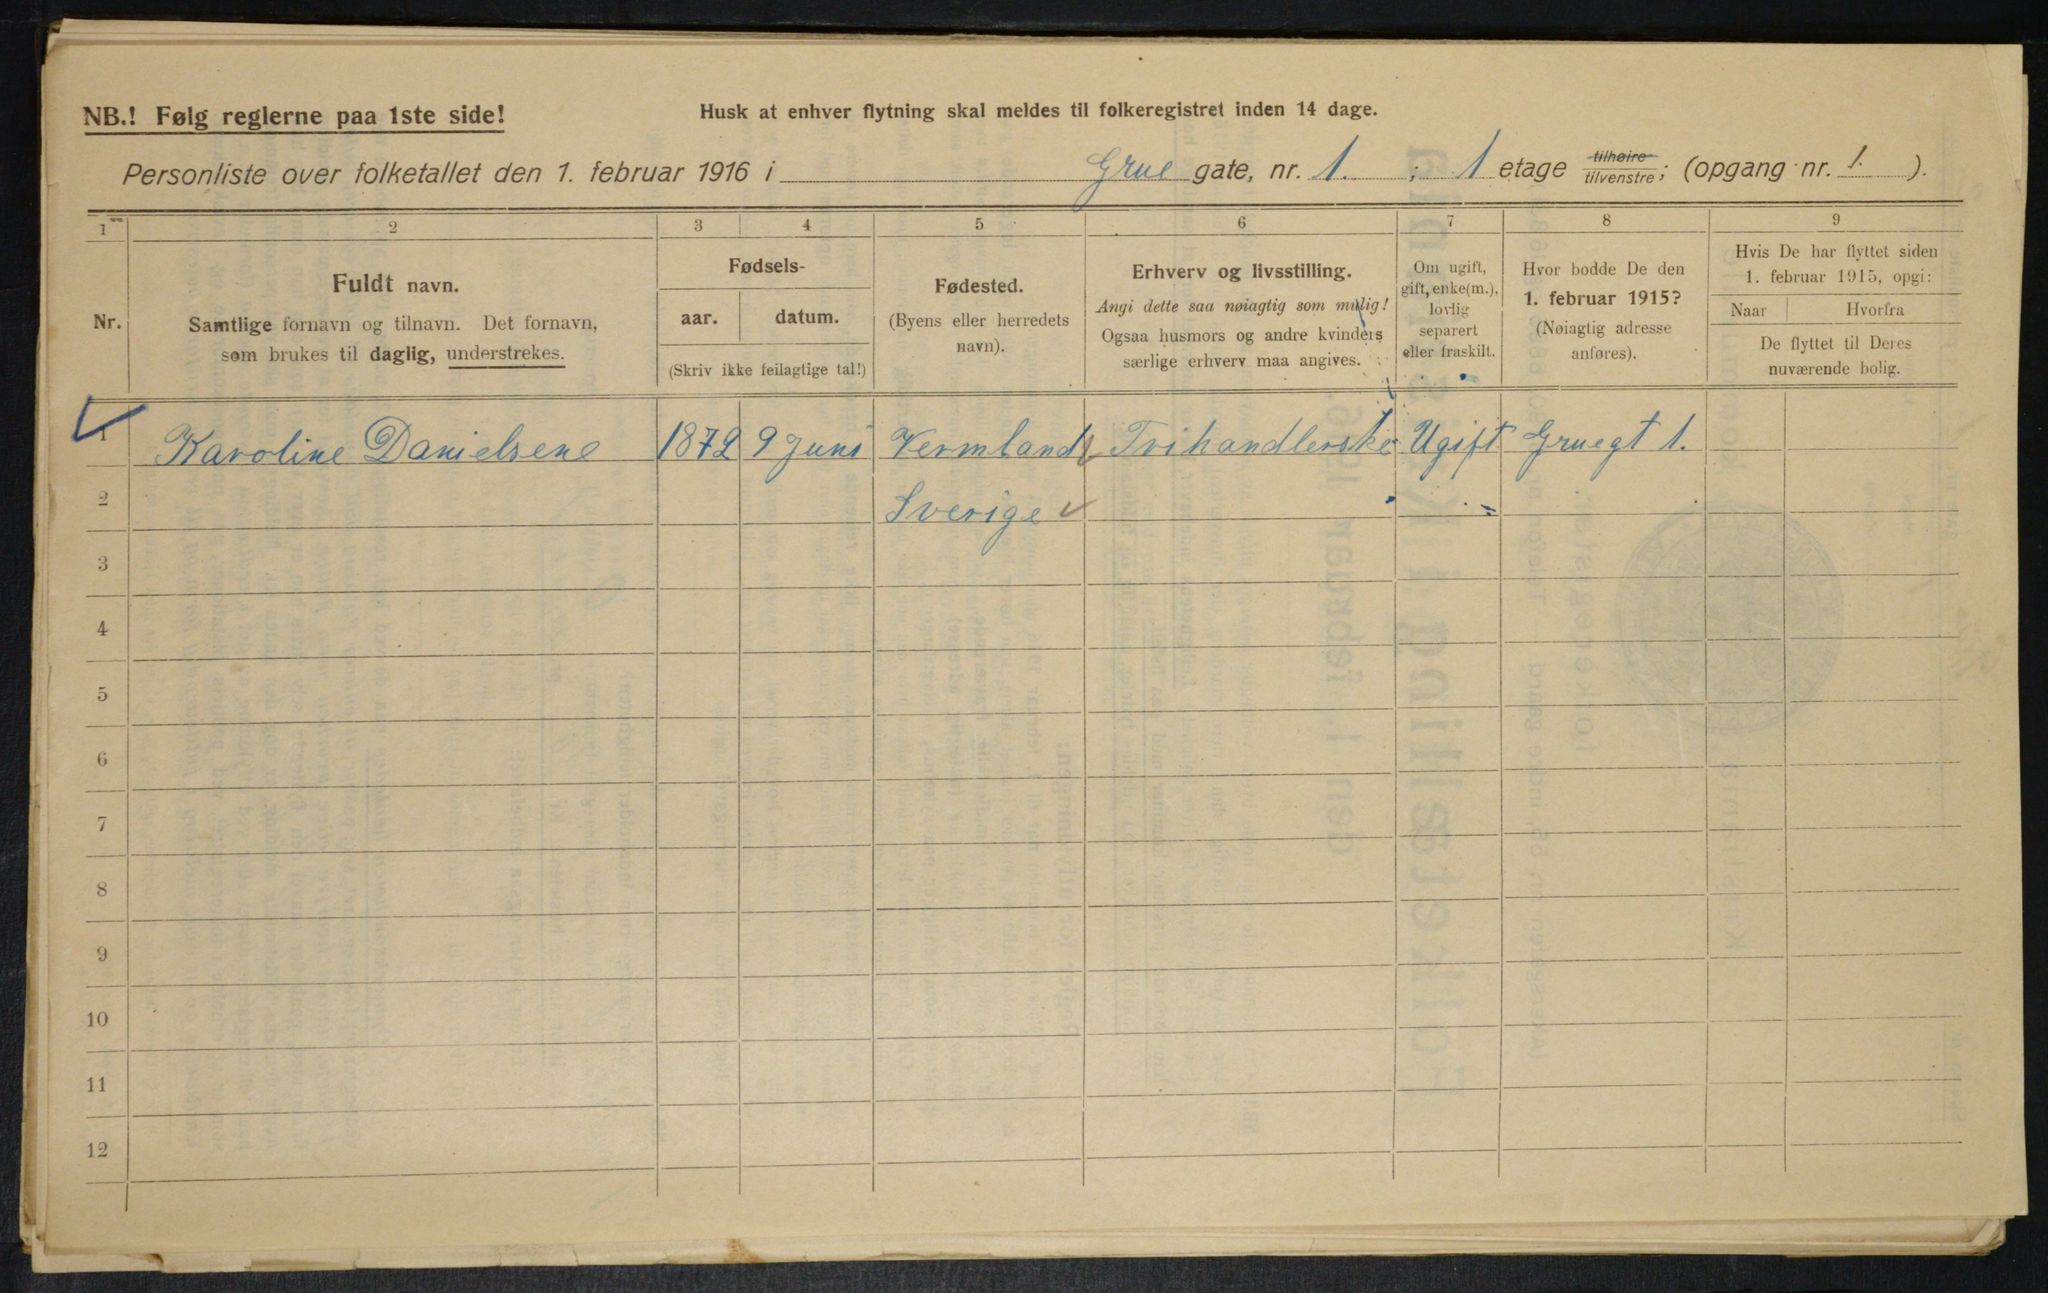 NB.! Følg reglerne paa 1ste side!
Husk at enhver flytning skal meldes til folkeregistret inden 14 dage.
Personliste over folketallet den 1. februar 1916 i Grue gate, nr. 1. ; 1 etage tilhøire/tilvenstre; (opgang nr. 1. ).
1 2 3 4 5 6 7 8 9
Nr.
Fuldt navn.
Samtlige fornavn og tilnavn. Det fornavn,
som brukes til daglig, understrekes.
Fødsels-
aar. datum.
(Skriv ikke feilagtige tal!)
Fødested.
(Byens eller herredets
navn).
Erhverv og livsstilling.
Angi dette saa nøiagtig som mulig!
Ogsaa husmors og andre kvinders
særlige erhverv maa angives.
Om ugift,
gift, enke(m.),
lovlig
separert
eller fraskilt.
Hvor bodde De den
1. februar 1915?
(Nøiagtig adresse
anføres).
Hvis De har flyttet siden
1. februar 1915, opgi:
Naar Hvorfra
De flyttet til Deres
nuværende bolig.
1 Karoline Danielsene 1872 9 Juni Vermland Frihandlerske Ugift Gruegt 1.
2 Sverige
3
4
5
6
7
8
9
10
11
12